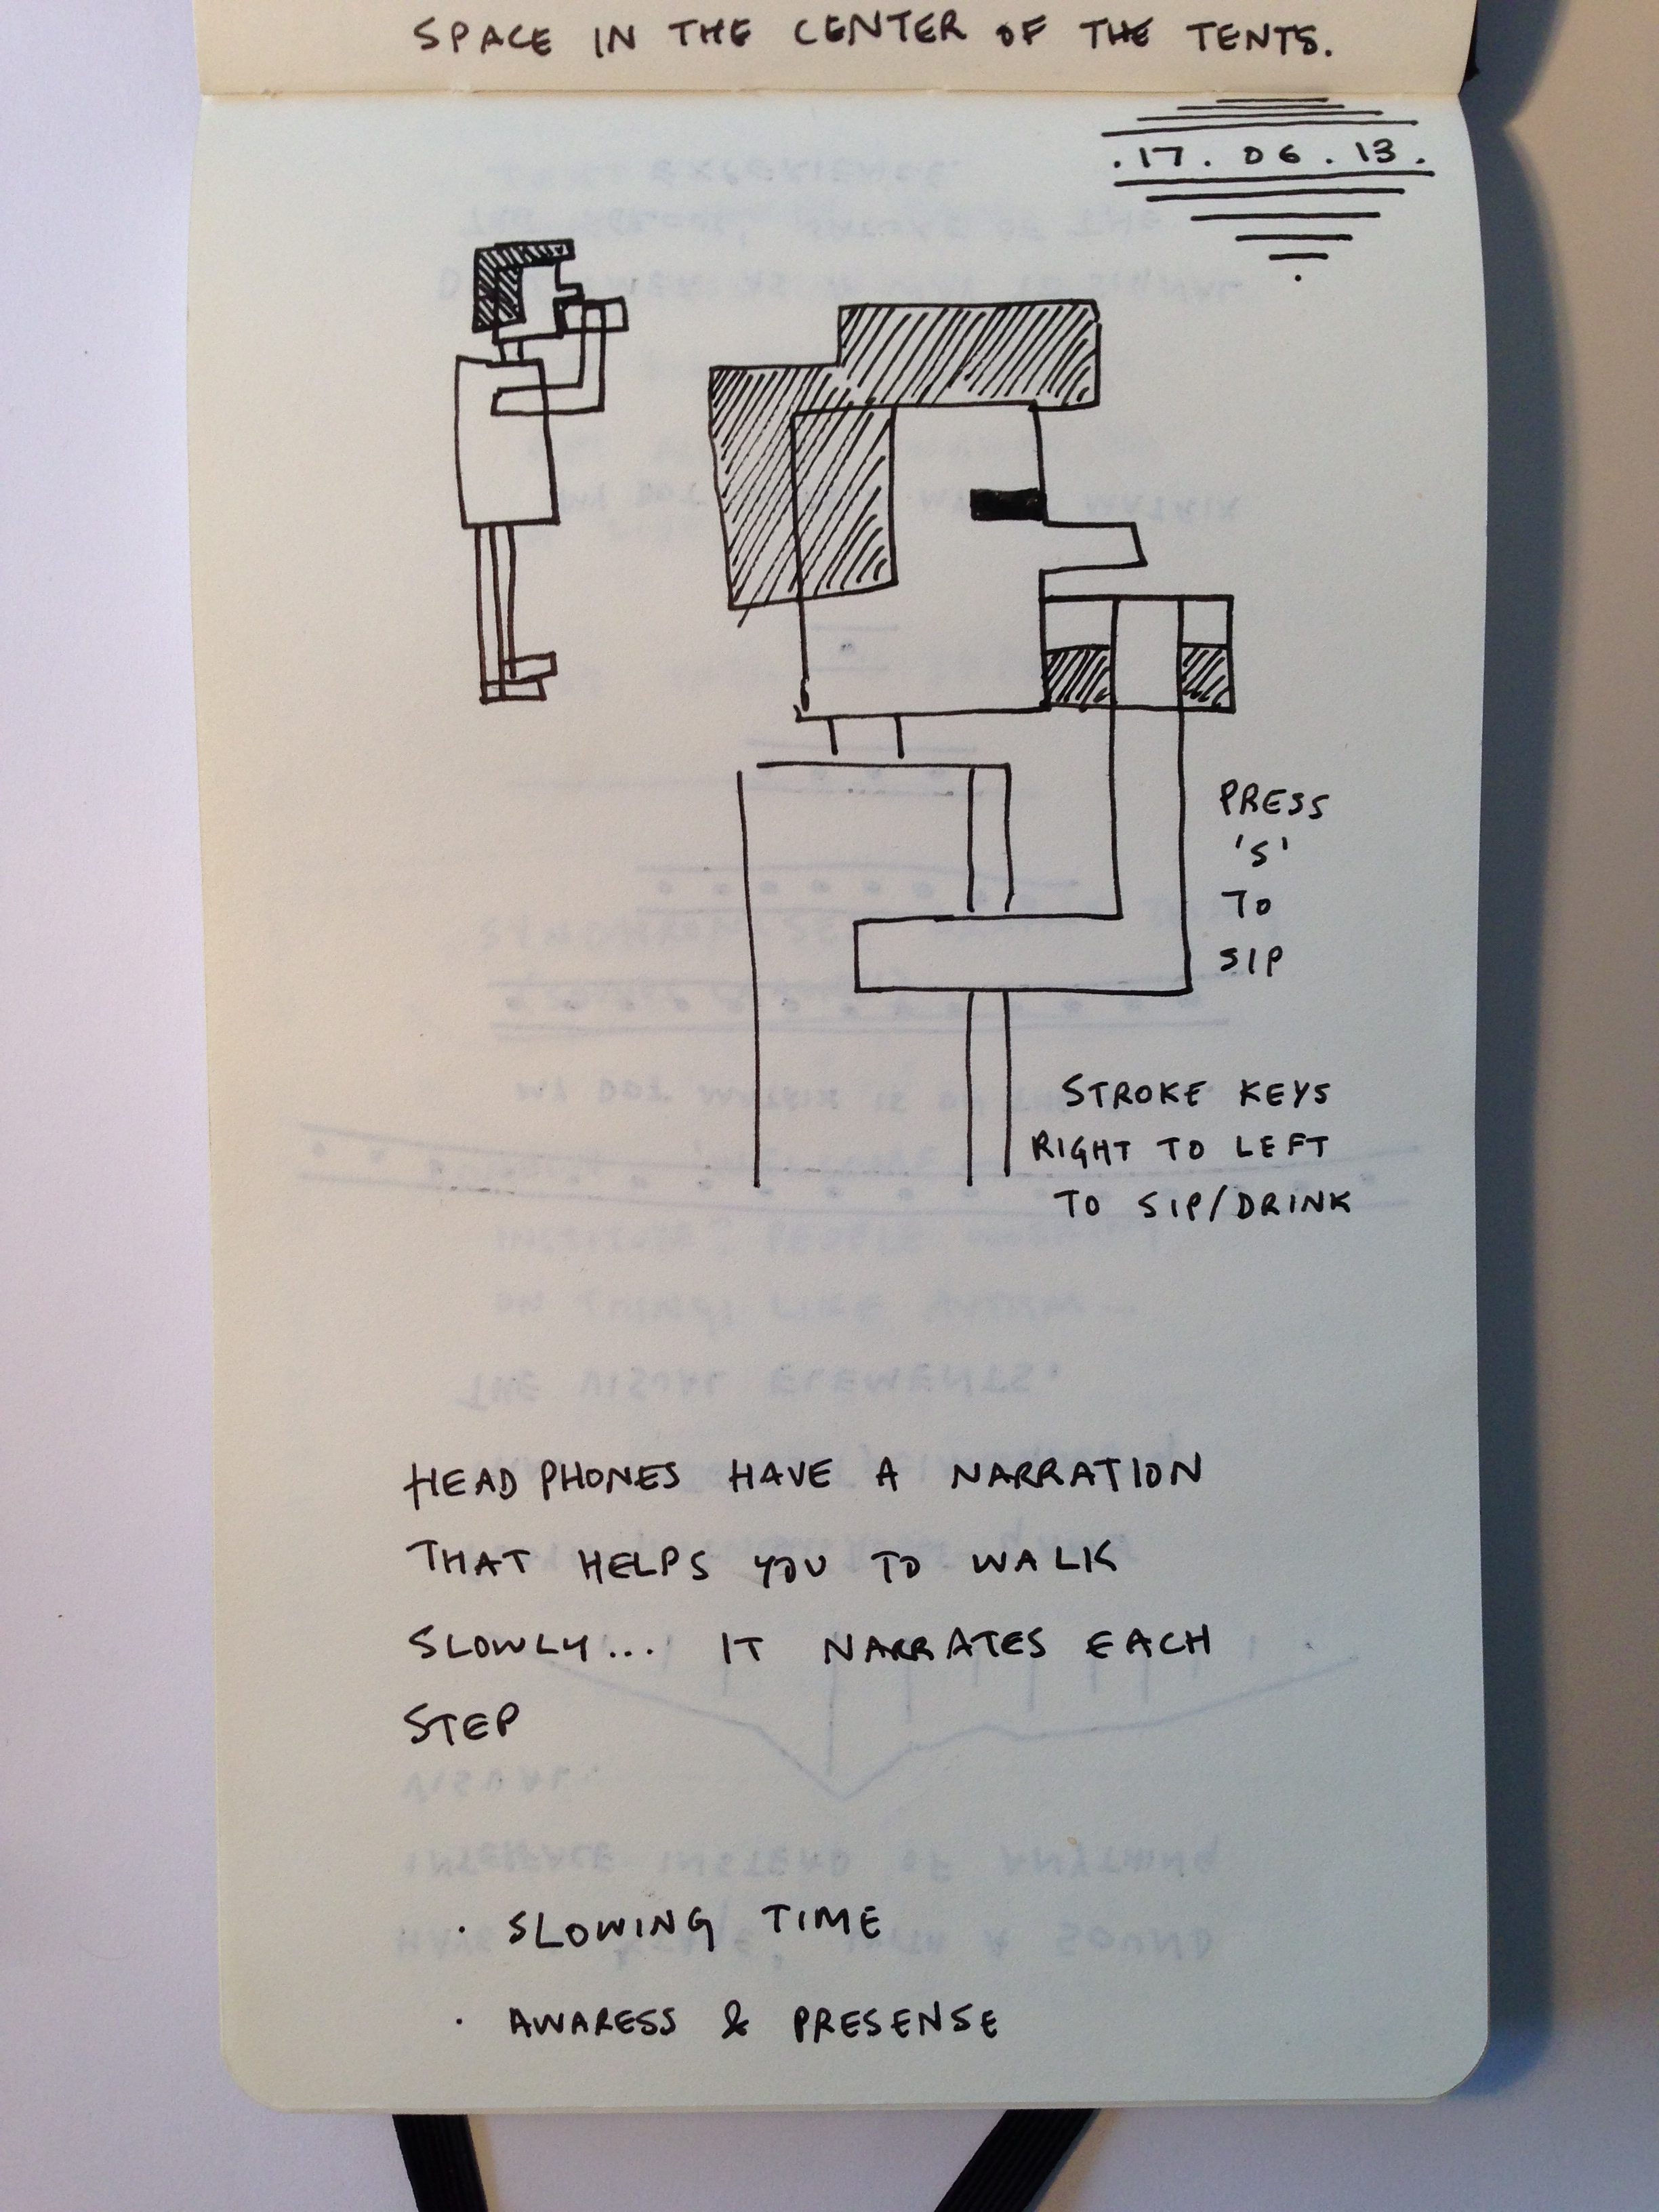 SPACE IN THE CENTER OF THE TENTS.
.17.06.13.
PRESS
'S'
TO
SIP
STROKE KEYS
RIGHT TO LEFT
TO SIP/DRINK
HEADPHONES HAVE A NARRATION
THAT HELPS YOU TO WALK
SLOWLY... IT NARRATES EACH
STEP
· SLOWING TIME
· AWARESS & PRESENSE